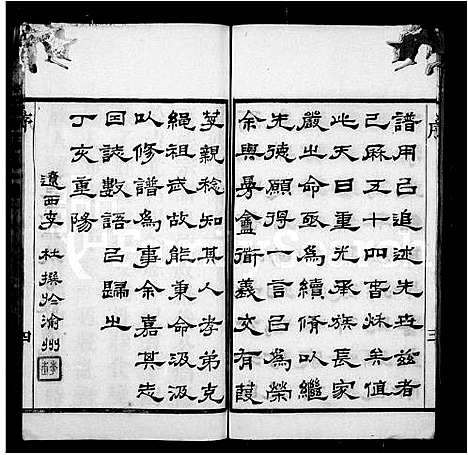 譜用已追述先世茲者
已廢五十四春秋矣值
此天日重光承族長家
嚴之命亟為續修以繼
先德願得一言已為榮
余與易盦衛義交有葭
莩親稔知其人孝弟克
繩祖武故能秉命汲汲
以修譜為事余嘉其志
因誌數語已歸之
丁亥重陽
遼西李杜撰於渝州
序
三
四